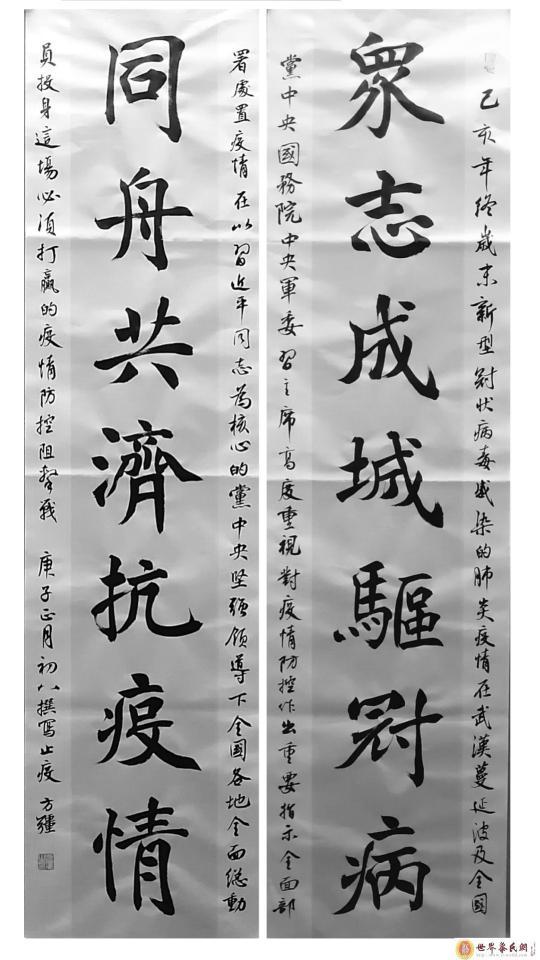 己亥年終歲末新型冠狀病毒感染的肺炎疫情在武漢蔓延波及全國
眾志成城驅冠病
黨中央國務院中央軍委習主席高度重視對疫情防控作出重要指示全面部
署處置疫情在以習近平同志為核心的黨中央坚强领導下全國各地全面總動
同舟共濟抗疫情
員投身這場必須打贏的疫情防控阻擊戰 庚子正月初八撰寫止疫 方疆
世界蔡氏網